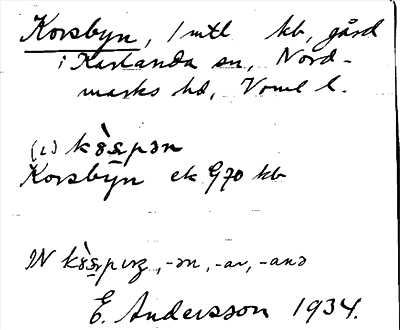 Korsbyn, 1 mtl kb, gård
i Karlanda sn, Nord-
marks hd, Vrml l.
(i) kò̤s̲pən
Korsbyn ek G70 kb
IN , -ən, -ar, -anə
E. Andersson 1934.